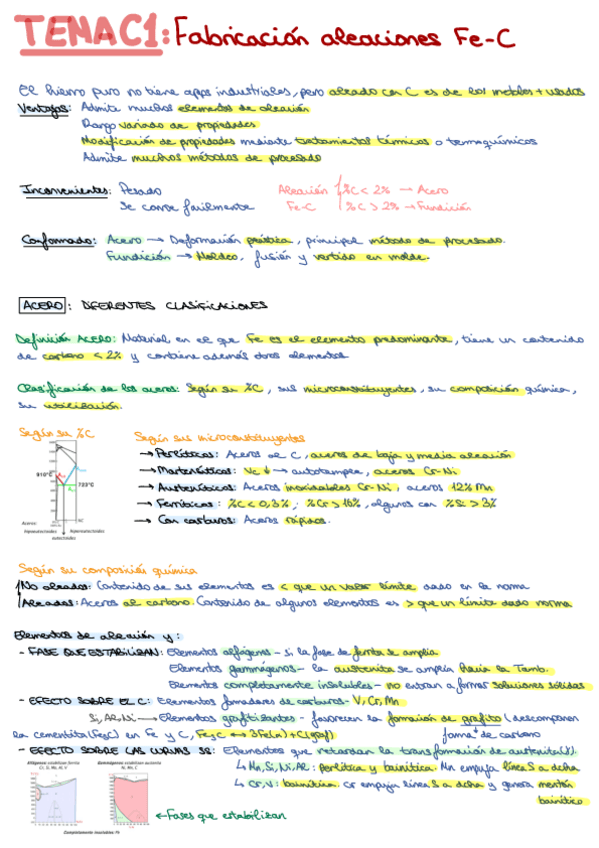 TEMA C1: Fabricación aleaciones Fe-C
El hierro puro no tiene apps industriales, pero aleado con C es de los metales + usados
Ventajas: Admite muchos elementos de aleación
Rango variado de propiedades
Modificación de propiedades mediante tratamientos térmicos o termoquímicos
Admite muchos métodos de procesado
Inconvenientes: Pesado
Se corroe fácilmente
Aleación Fe-C
%C < 2% → Acero
%C > 2% → Fundición
Conformado: Acero → Deformación plástica, principal método de procesado.
Fundición → Moldeo, fusión y vertido en molde.
ACERO: DIFERENTES CLASIFICACIONES
Definición Acero: Material en el que Fe es el elemento predominante, tiene un contenido
de carbono < 2% y contiene además otros elementos
Clasificación de los aceros: Según su %C, sus microconstituyentes, su composición química,
su utilización.
Según su %C
910°C
723°C
Aceros:
hipoeutectoides
hipereutectoides
eutectoides
Según sus microconstituyentes
→ Perlíticos: Aceros al C, aceros de baja y media aleación
→ Martensíticos: Vc ↓ → autotemper, aceros Cr-Ni
→ Austeníticos: Aceros inoxidables Cr-Ni, aceros 12% Mn
→ Ferríticos: %C < 0,3%, %Cr > 16%, algunos con %Si > 3%
→ Con carburos: Aceros rápidos.
Según su composición química
No aleados: Contenido de sus elementos es < que un valor límite dado en la norma
Aleados: Aceros al carbono. Contenido de algunos elementos es > que un límite dado norma
Elementos de aleación y:
- FASE QUE ESTABILIZAN: Elementos alfágenos - si la fase de ferrita se amplía
Elementos gammágenos - la austenita se amplía hacia la Tamb.
Elementos completamente insolubles - no entran a formar soluciones sólidas
- EFECTO SOBRE EL C: Elementos formadores de carburos - V, Cr, Mn
Si, Al, Ni → Elementos grafitizantes - favorecen la formación de grafito (descomponen
la cementita (Fe3C) en Fe y C, Fe3C ↔ 3Fe(α) + C(graf)
forma de carbono
- EFECTO SOBRE LAS CURVAS SS: Elementos que retarsan la transformación de austenita (γ).
↳ Mn, Si, Ni, Al: perlítica y bainítica. Mn empuja línea S a dcha
↳ Cr, V: bainítica. Cr empuja línea S a dcha y genera mentón
bainítico
Alfágenos: estabilizan ferrita
Gammágenos: estabilizan austenita
Ni, Mn, C
Completamente insolubles: Pb
← Fases que estabilizan